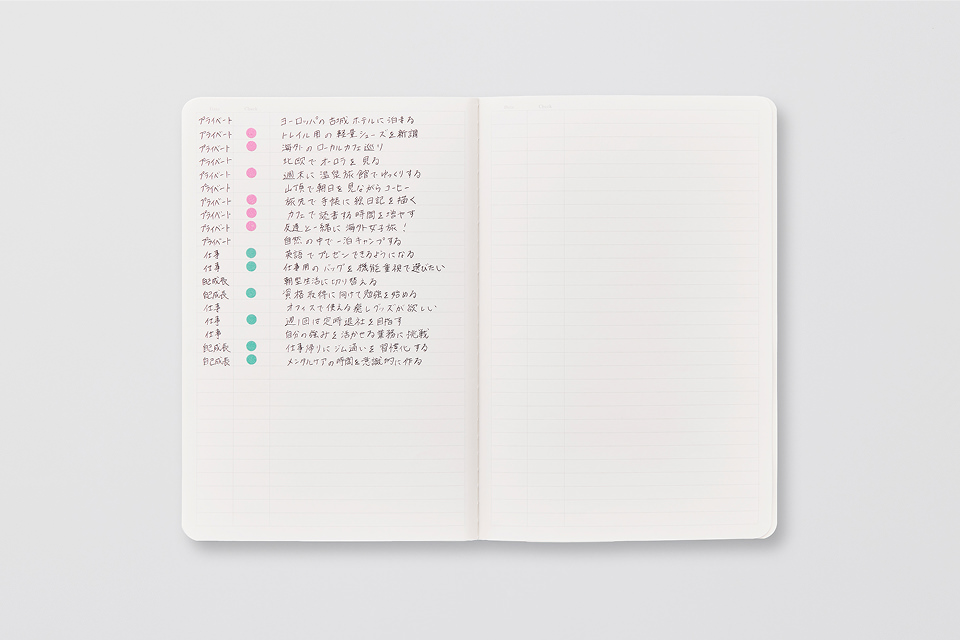 プライベート ヨーロッパの古城ホテルに泊まる
プライベート トレイル用の軽量シューズを新調
プライベート 海外のローカルカフェ巡り
プライベート 北欧でオーロラを見る
プライベート 週末に温泉旅館でゆっくりする
プライベート 山頂で朝日を見ながらコーヒー
プライベート 旅先で手帳に絵日記を描く
プライベート カフェで読書する時間を増やす
プライベート 友達と一緒に海外女子旅!
プライベート 自然の中で一泊キャンプする
仕事 英語でプレゼンできるようになる
仕事 仕事用のバッグを機能重視で選びたい
自己成長 朝型生活に切り替える
自己成長 資格取得に向けて勉強を始める
仕事 オフィスで使える癒しグッズが欲しい
仕事 週1回は定時退社を目指す
仕事 自分の強みを活かせる業務に挑戦
自己成長 仕事帰りにジム通いを習慣化する
自己成長 メンタルケアの時間を意識的に作る